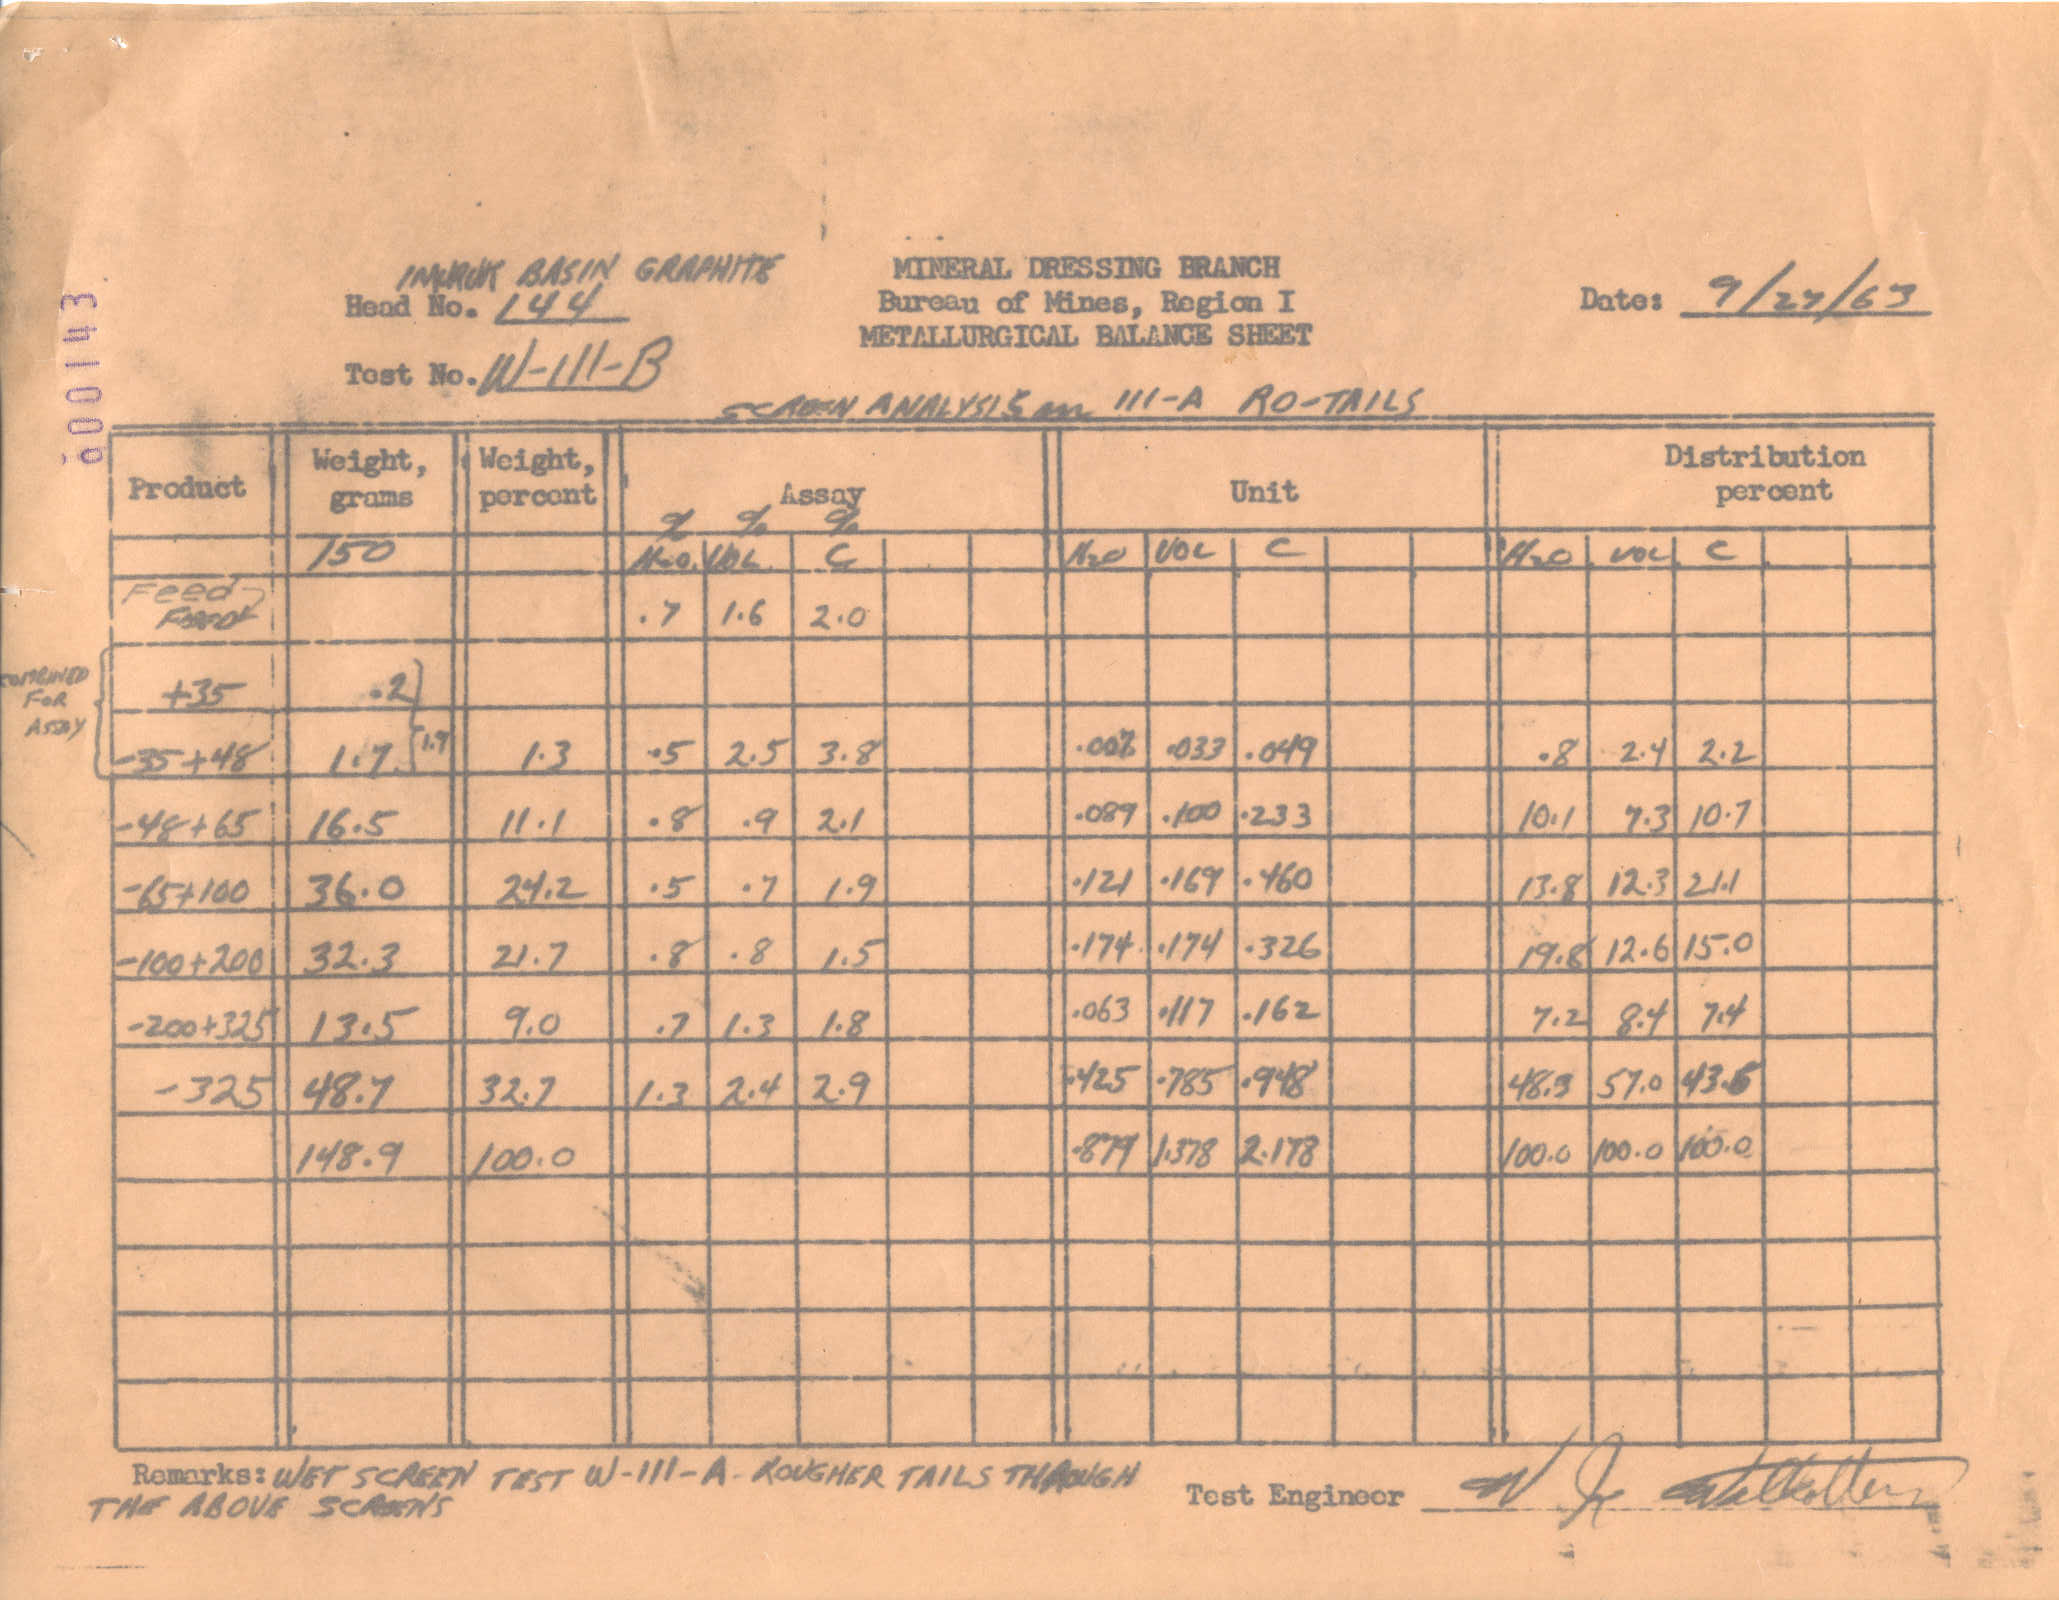 600143
IMURUK BASIN GRAPHITE
Head No. 144
Test No. W-111-B
MINERAL DRESSING BRANCH
Bureau of Mines, Region I
METALLURGICAL BALANCE SHEET
Date: 9/27/63
SCREEN ANALYSIS on 111-A RO-TAILS
Product Weight, grams Weight, percent Assay Unit Distribution percent
% % %
150 H2O VOL C H2O VOL C H2O VOL C
Feed
.7 1.6 2.0
COMBINED FOR ASSAY
+35 .2
-35+48 1.7 1.9 1.3 .5 2.5 3.8 .007 .033 .049 .8 2.4 2.2
-48+65 16.5 11.1 .8 .9 2.1 .089 .100 .233 10.1 7.3 10.7
-65+100 36.0 24.2 .5 .7 1.9 .121 .169 .460 13.8 12.3 21.1
-100+200 32.3 21.7 .8 .8 1.5 .174 .174 .326 19.8 12.6 15.0
-200+325 13.5 9.0 .7 1.3 1.8 .063 .117 .162 7.2 8.4 7.4
-325 48.7 32.7 1.3 2.4 2.9 .425 .785 .948 48.3 57.0 43.6
148.9 100.0 .879 1.378 2.178 100.0 100.0 100.0
Remarks: WET SCREEN TEST W-111-A ROUGHER TAILS THROUGH
THE ABOVE SCREENS
Test Engineer